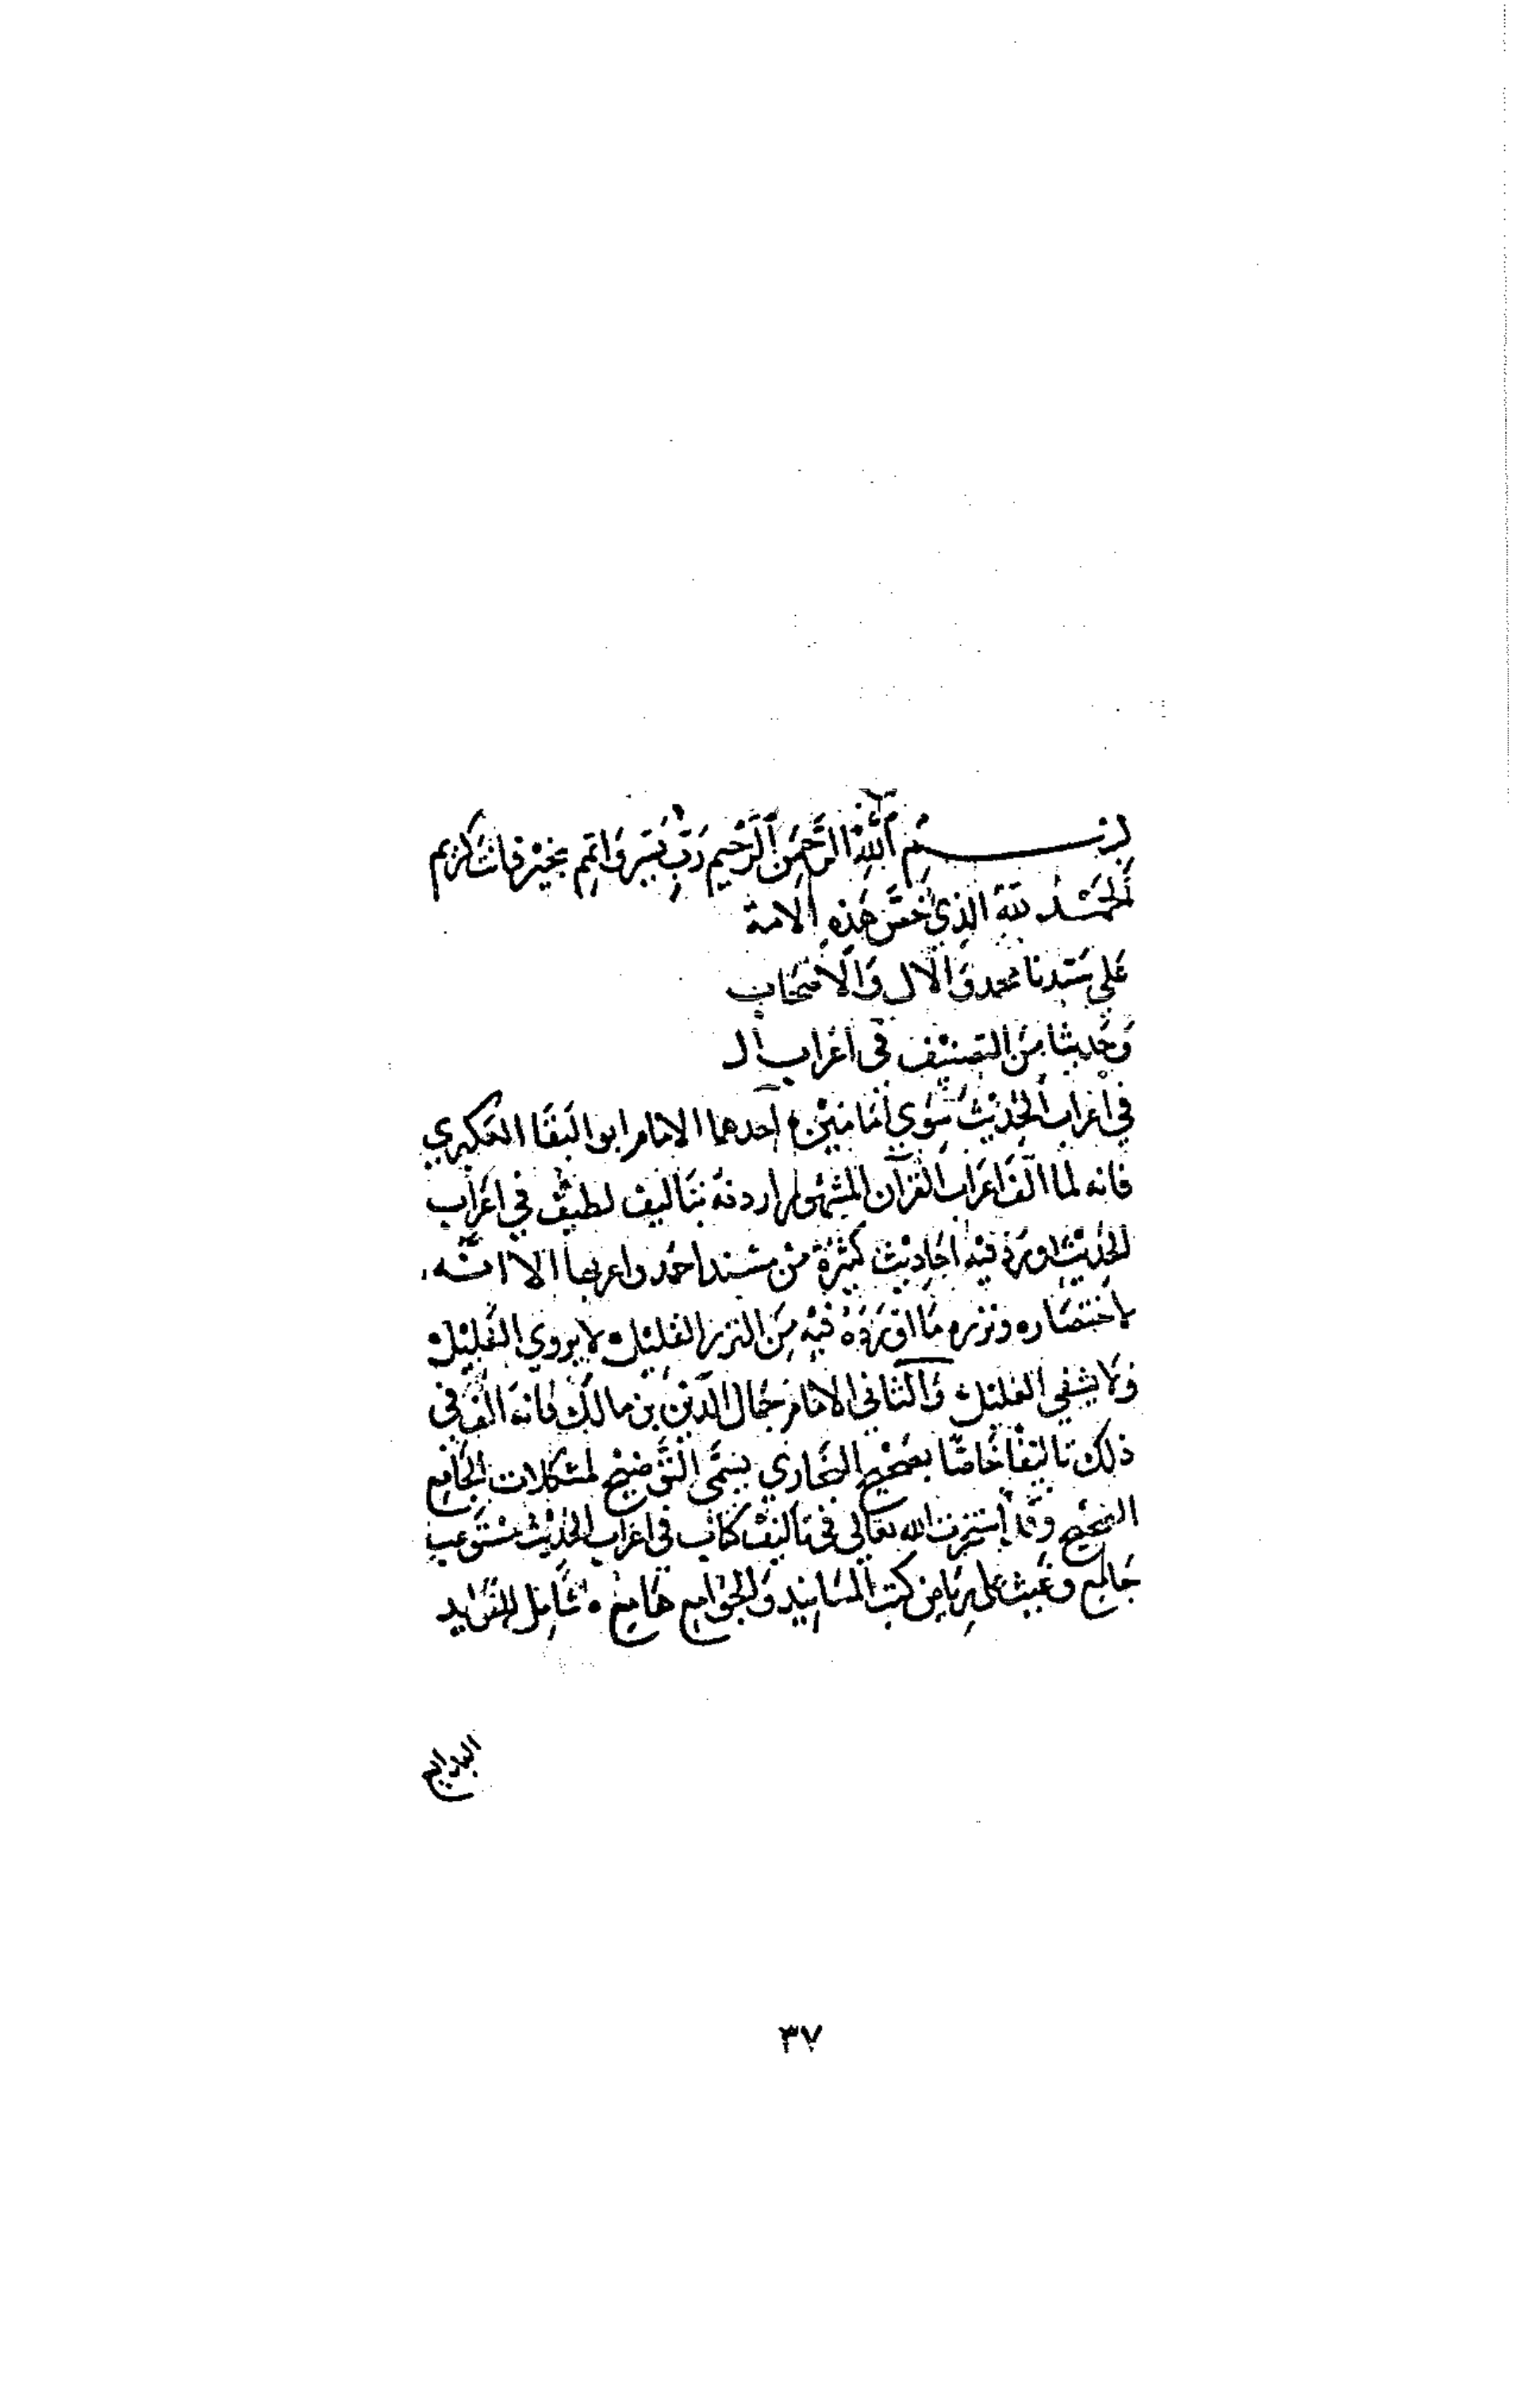 بسم الله الرحمن الرحيم رب يسر واتمم بخير فانك كريم
الحمد لله الذي خص هذه الامة
علي سيدنا محمد والآل والاصحاب
وحديثا من التصنيف في اعراب ال
في اعراب الحديث سوي امامين احدهما الامام ابو البقا العكبري
فانه لما الف اعراب القرآن المشهور اردفه بتاليف لطيف في اعراب
الحديث اورد فيه احاديث كثيرة من مسند احمد واعربها الا انه
لاختصاره ونزره ما اورده فيه من النزر القليل لا يروي الغليل
ولا يشفي العليل والثاني الامام جمال الدين بن مالك فانه الف في
ذلك تاليفا خاصا بصحيح البخاري يسمى التوضيح لمشكلات الجامع
الصحيح وقد استخرت الله تعالى في تاليف كتاب في اعراب الحديث مستوعب
جامع وغيث على رياض كتب المسانيد والجوامع هامع شامل للفوايد
البديع
٣٧